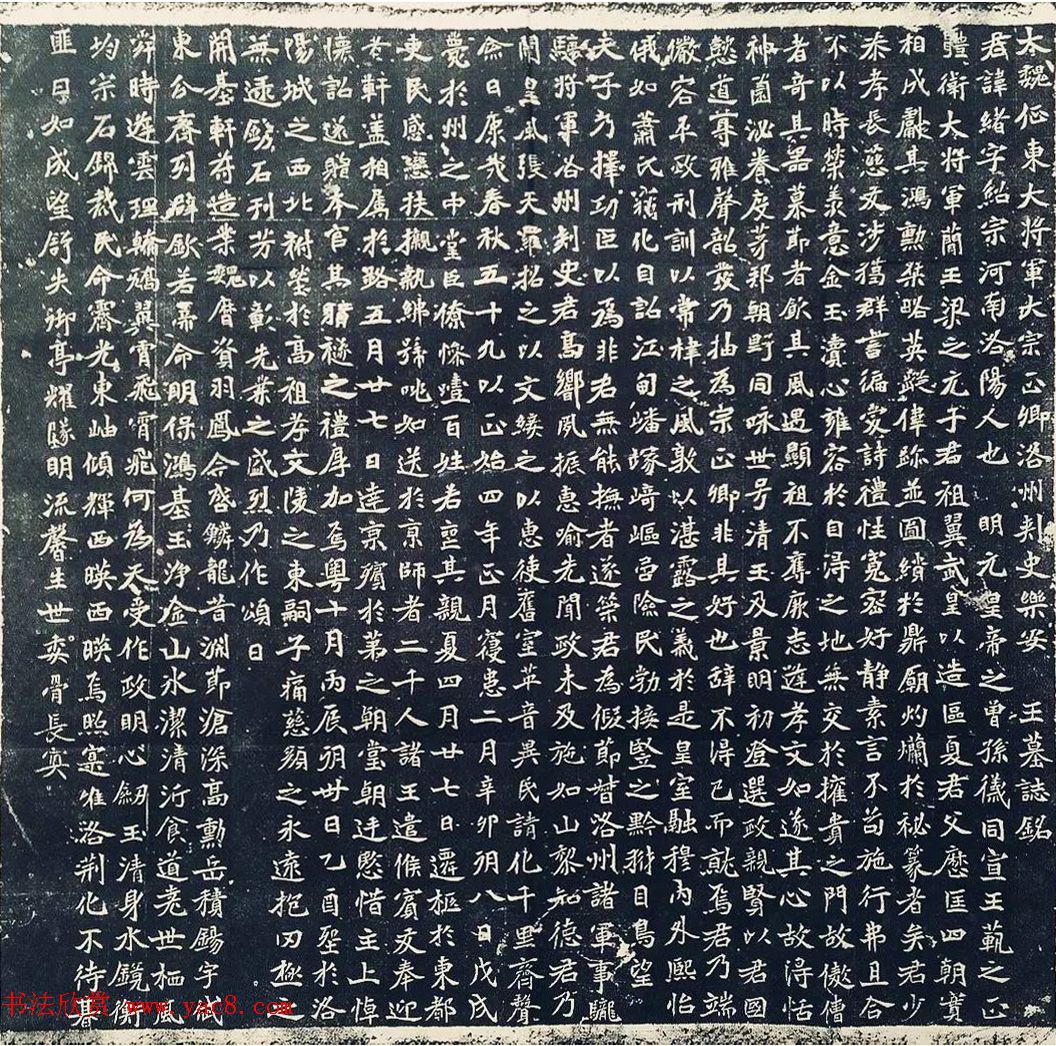 大魏征東大將軍大宗正卿洛州刾史樂安王墓誌銘
君諱緒字紹宗河南洛陽人也明元皇帝之曾孫儀同宣王範之正
體衛大將軍簡王梁之元子君祖翼武皇以造區夏君父歷匡四朝寔
相成獻其鴻勳桀略英蹤偉跡並圖綃於鼎廟灼爛於秘篆者矣君少
恭孝長慈友涉獵群書徧愛詩禮性寬密好靜素言不苟施行弗且合
不以時榮羨意金玉瀆心雍容於自得之地無交於權貴之門故傲僧
者奇其器慕節者欽其風遇顯祖不奪厥志逮孝文如遂其心故得恬
神園泌養度茅邦朝野同咏世号清王及景明初登選政親賢以君國
懿道尊雅聲韶發乃抽為宗正卿非其好也辭不得已而就焉君乃端
儼容平政刑訓以常棣之風敦以湛露之義於是皇室融穆內外熙怡
俄如蕭氏竊化自詔江甸蟠塚崎嶇邑險民勃接豎之黔目鳥望
天子乃擇功臣以為非君無能撫者遂策君為假節督洛州諸軍事驤
驤將軍洛州刺史君高嚮夙振惠喻先聞政未及施如山黎知德君乃
闡皇風張天羅招之以文綏之以惠使舊室革音異民請化千里齊聲
僉曰康哉春秋五十九以正始四年正月寑患二月辛卯朔八日戊戌
薨於州之中堂臣僚悚噎百姓若喪其親夏四月廿七日遷柩於東都
吏民感戀扶櫬執紼號咷如送於京師者二千人諸王遣候賓友奉迎
軒蓋相屬於路五月廿七日達京殯於第之朝堂朝廷愍惜主上悼
懷詔遂贈本官其賵襚之禮厚加焉粤十月丙辰朔卅日乙酉葬於洛
陽城之西北祔塋於高祖孝文陵之東嗣子痛慈顏之永遠抱罔極之
無逮鐫石刊芳以彰先業之盛烈乃作頌曰
開基軒符造業魏曆資羽鳳令啓鱗龍昔淵節滄深高勳岳積錫宇
東公齊列辟欽若帝命明保鴻基玉淨金山水潔清沂食道耄世栖風
舜時遊雲理翰鴻翼霄飛霄飛何為天受作政明心劒玉清身水鏡衡
均宗石錦裁民命霱光東岫傾輝西暎西暎焉照寔維洛荆化不待暮
匪日如成望舒失御亭耀朦明流馨生世委骨長冥
书法欣赏 www.yac8.com